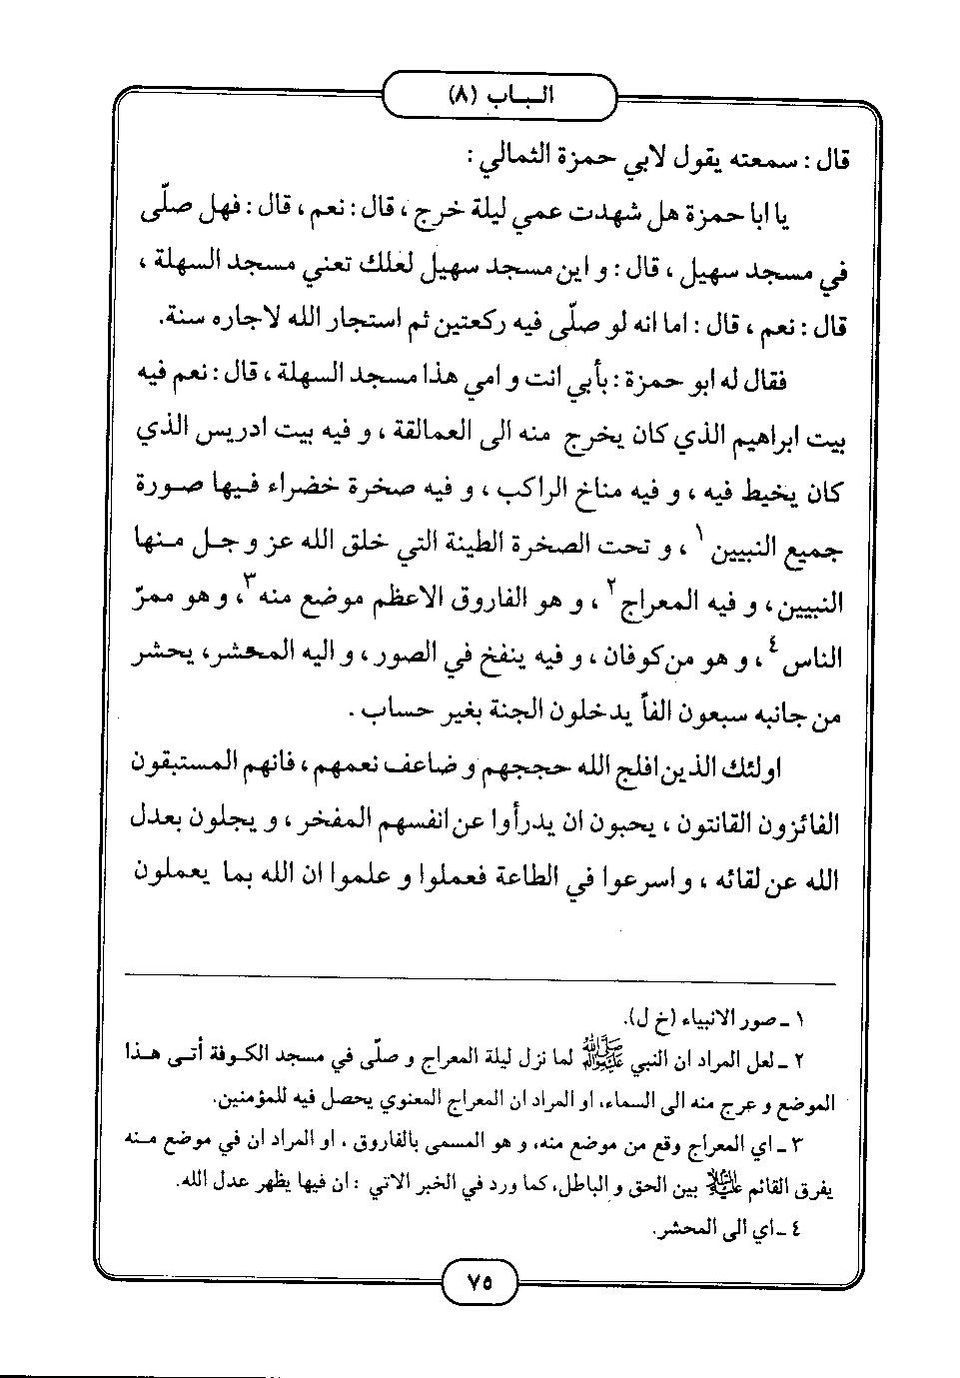 البـاب (٨)
قال : سمعته يقول لابي حمزة الثمالي :
يا ابا حمزة هل شهدت عمي ليلة خرج ، قال : نعم ، قال : فهل صلّى
في مسجد سهيل ، قال : و اين مسجد سهيل لعلك تعني مسجد السهلة ،
قال : نعم ، قال : اما انه لو صلّى فيه ركعتين ثم استجار الله لاجاره سنة.
فقال له ابو حمزة : بأبي انت و امي هذا مسجد السهلة ، قال : نعم فيه
بيت ابراهيم الذي كان يخرج منه الى العمالقة ، و فيه بيت ادريس الذي
كان يخيط فيه ، و فيه مناخ الراكب ، و فيه صخرة خضراء فـيها صـورة
جميع النبيين ١ ، و تحت الصخرة الطينة التي خلق الله عز و جـل مـنها
النبيين، و فيه المعراج ٢ ، و هو الفاروق الاعظم موضع منه ٣، و هو ممرّ
الناس ٤ ، و هو من كوفان ، و فيه ينفخ في الصور ، و اليه المحشر، يحشر
من جانبه سبعون الفاً يدخلون الجنة بغير حساب .
اولئك الذين افلج الله حججهم و ضاعف نعمهم ، فانهم المستبقون
الفائزون القانتون ، يحبون ان يدرأوا عن انفسهم المفخر ، و يجلون بعدل
الله عن لقائه ، و اسرعوا في الطاعة فعملوا و علموا ان الله بما يعملون
١ ـ صور الانبياء (خ ل).
٢ ـ لعل المراد ان النبي ﷺ لما نزل ليلة المعراج و صلّى في مسجد الكـوفة أتـى هـذا
الموضع و عرج منه الى السماء، او المراد ان المعراج المعنوي يحصل فيه للمؤمنين.
٣ ـ اي المعراج وقع من موضع منه، و هو المسمى بالفاروق ، او المراد ان في موضع مـنه
يفرق القائم عليه السلام بين الحق و الباطل، كما ورد في الخبر الاتي : ان فيها يظهر عدل الله.
٤ ـ اي الى المحشر.
٧٥